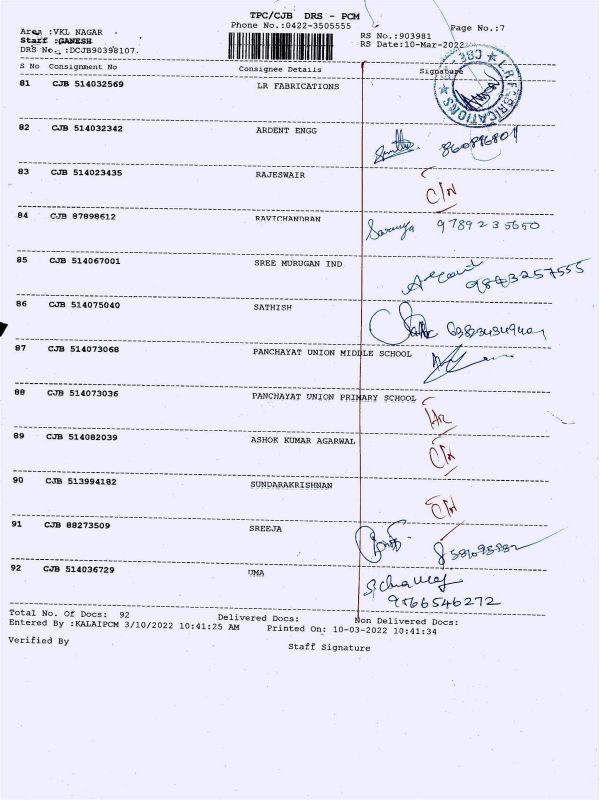 TPC/CJB DRS - PCM
Phone No.:0422-3505555
Page No.:7
Area :VKL NAGAR
RS No.:903981
Staff :GANESH
RS Date:10-Mar-2022
DRS No. :DCJB90398107.
S No Consignment No Consignee Details Signature
81 CJB 514032569 LR FABRICATIONS
LR FABRICATIONS ★ CBE ★
82 CJB 514032342 ARDENT ENGG
83 CJB 514023435 RAJESWAIR C/N
84 CJB 87898612 RAVICHANDRAN Saranya 9789235650
85 CJB 514067001 SREE MURUGAN IND 9843257555
86 CJB 514075040 SATHISH
87 CJB 514073068 PANCHAYAT UNION MIDDLE SCHOOL
88 CJB 514073036 PANCHAYAT UNION PRIMARY SCHOOL
89 CJB 514082039 ASHOK KUMAR AGARWAL C/N
90 CJB 513994182 SUNDARAKRISHNAN C/N
91 CJB 88273509 SREEJA
92 CJB 514036729 UMA
9566546272
Total No. Of Docs: 92 Delivered Docs: Non Delivered Docs:
Entered By :KALAIPCM 3/10/2022 10:41:25 AM Printed On: 10-03-2022 10:41:34
Verified By Staff Signature